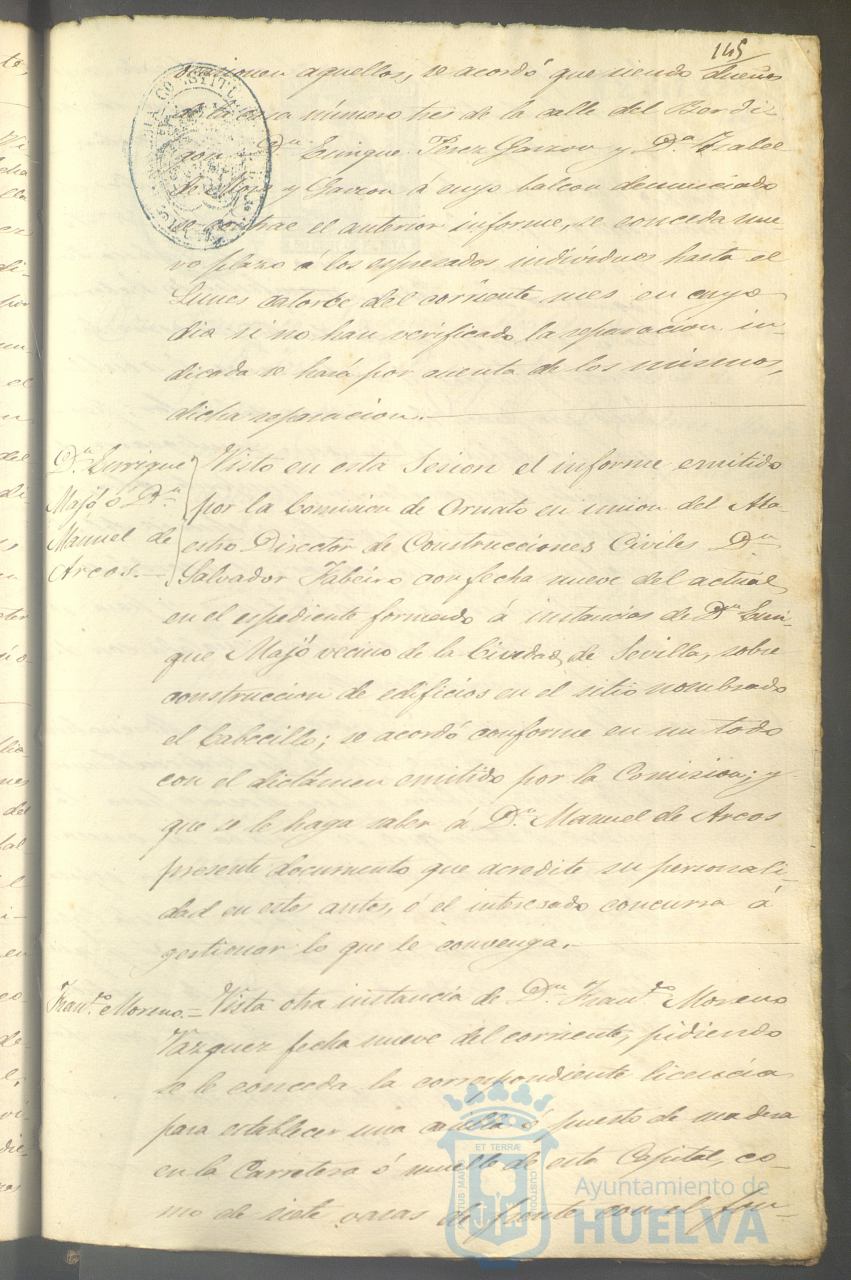 145
aquellos, se acordó que siendo dueños
casa número tres de la calle del Bordi-
gon Dn. Enrique Perez Garzon y Da. Isabel
de Mora y Garzon á cuyo balcon denunciado
se contrae el anterior informe, se conceda nue-
vo plazo á los espresados individuos hasta el
Lunes catorce del corriente mes en cuyo
dia si no han verificado la reparacion in-
dicada se hará por cuenta de los mismos,
dicha reparacion.
Dn. Enrique
Majó ó Dn.
Manuel de
Arcos.
Visto en esta Sesion el informe emitido
por la Comision de Ornato en union del Ma-
estro Director de Construcciones Civiles Dn.
Salvador Fabeiro con fecha nueve del actual,
en el espediente formado á instancias de Dn. Enri-
que Majó vecino de la Ciudad de Sevilla, sobre
construccion de edificios en el sitio nombrado
el Cabecillo; se acordó conforme en un todo
con el dictámen emitido por la Comision; y
que se le haga saber á Dn. Manuel de Arcos
presente documento que acredite su personali-
dad en estos autos, ó el interesado concurra á
gestionar lo que le convenga.
Franco. Moreno. = Vista otra instancia de Dn. Franco. Moreno
Vazquez fecha nueve del corriente, pidiendo
se le conceda la correspondiente licencia
para establecer una casilla ó puesto de madera
en la Carretera ó muelle de esta Capital, co-
mo de siete varas de frente con el fon-
ET TERRÆ
CUSTODIA
Ayuntamiento de
HUELVA